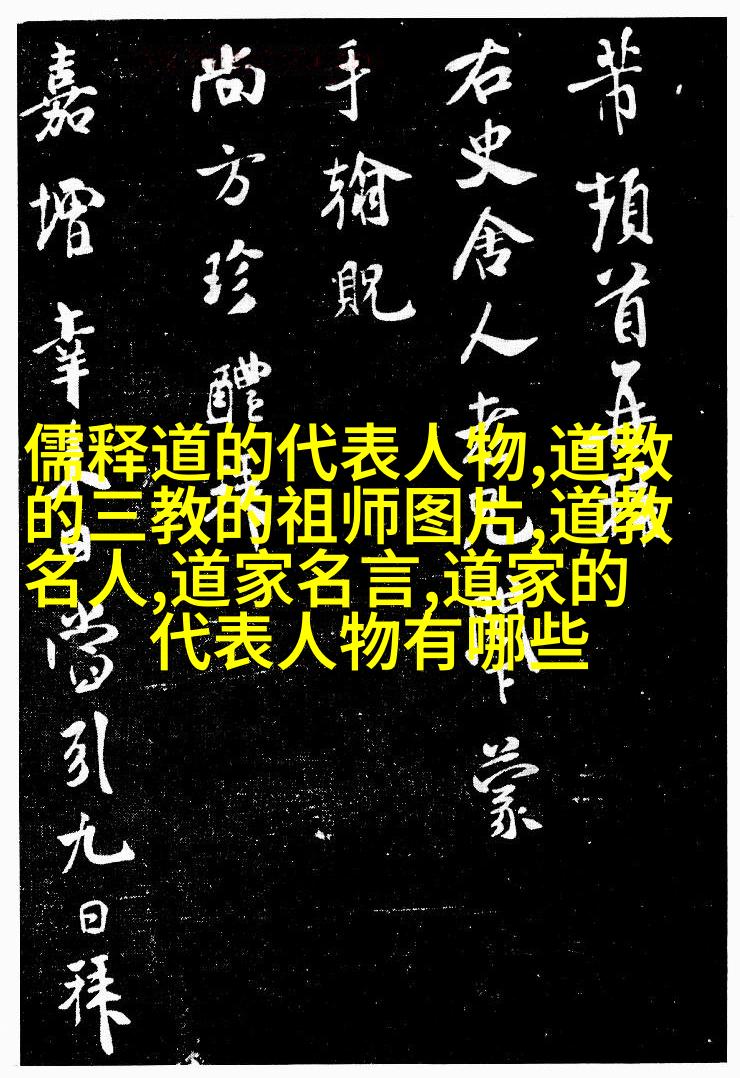 儒释道的代表人物,道教
的三教的祖师图片,道教
名人,道家名言,道家的
代表人物有哪些
芾頓首再
右史舍人老兄下蒙
手翰貺
尚方珍醴
嘉增幸日當引九日拜